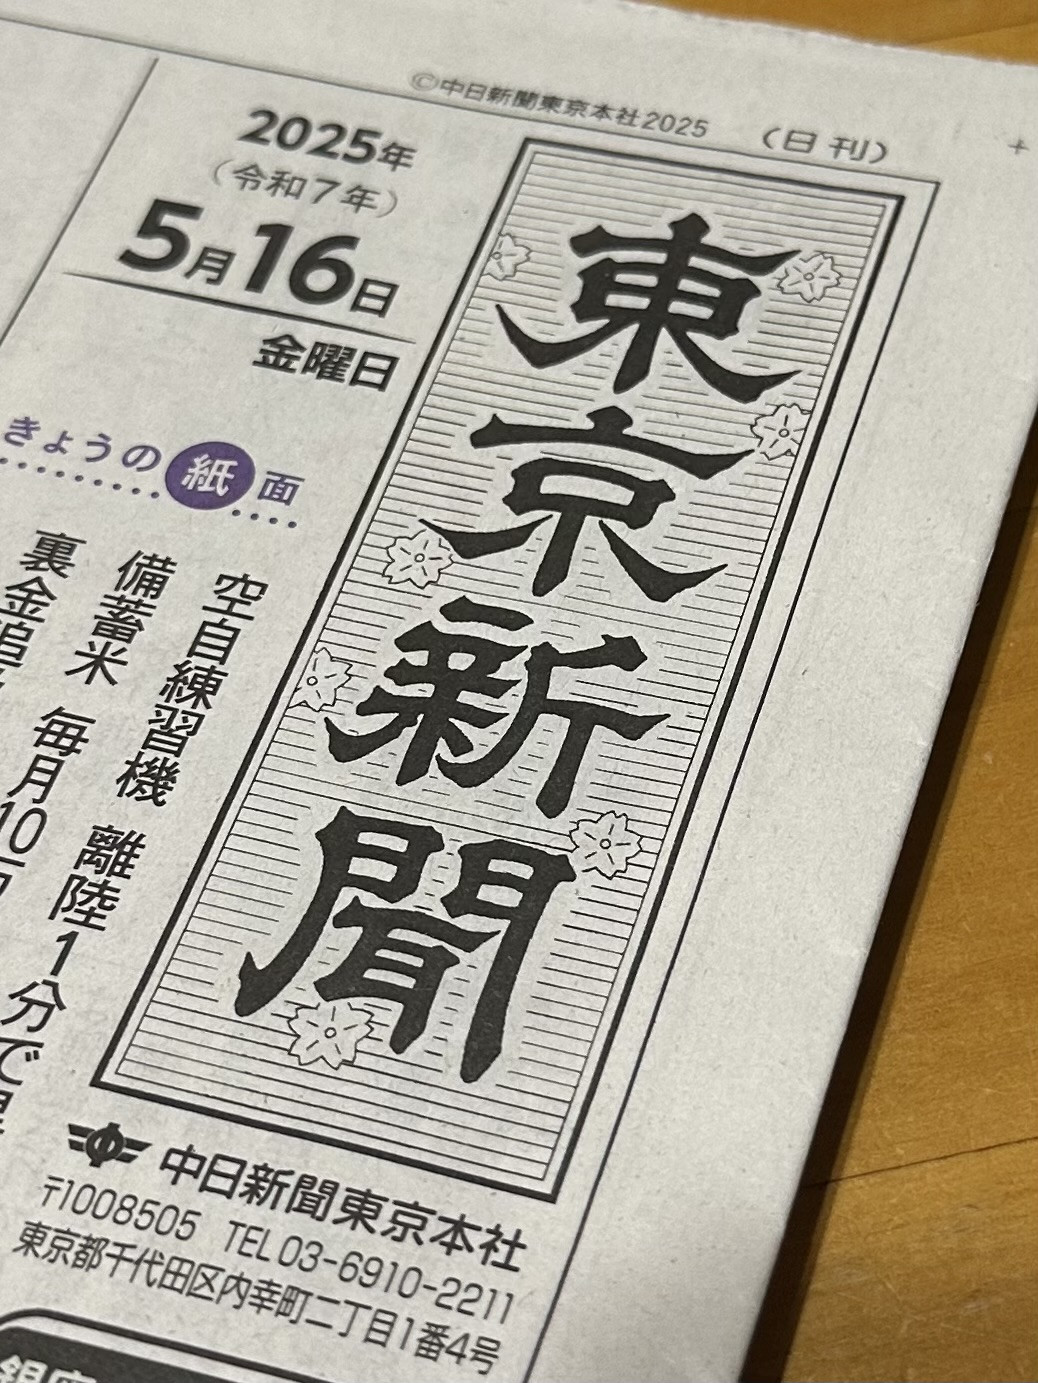 ©中日新聞東京本社2025 (日刊)
東京新聞
2025年
(令和7年)
5月16日
金曜日
きょうの紙面
空自練習機 離陸1分で
備蓄米 毎月10
裏金追
中日新聞東京本社
〒1008505 TEL 03-6910-2211
東京都千代田区内幸町二丁目1番4号
銀座